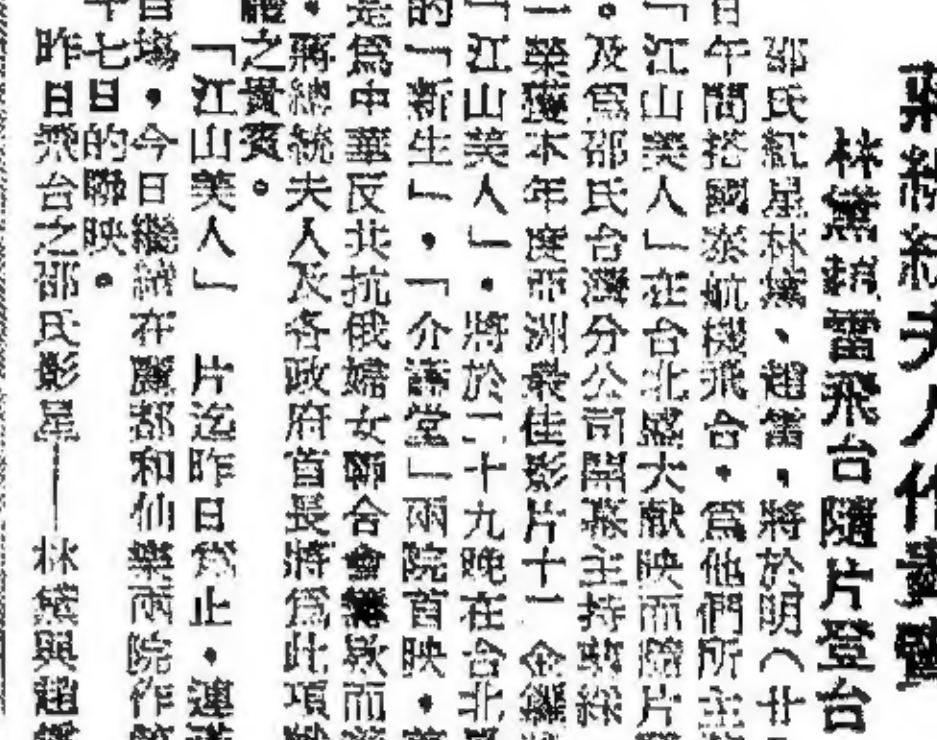 蔣總統夫人作貴賓
林黛趙雷飛台隨片登台
邵氏紅星林黛、趙雷，將於明（廿
日午間搭國泰航機飛台，爲他們所主
「江山美人」在台北盛大献映而隨片
。及爲邵氏台灣分公司開幕主持剪綵
一榮獲本年度亞洲最佳影片十一金鑼
「江山美人」，將於二十九晚在台北
的「新生」，「介壽堂」兩院首映，
是爲中華反共抗俄婦女聯合會籌款而
，蔣總統夫人及各政府首長將爲此項
禮之貴賓。
「江山美人」片迄昨日爲止，連
首塲，今日繼續在麗都和仙樂兩院作
十七日的聯映。
昨日飛台之邵氏影星——林黛與趙